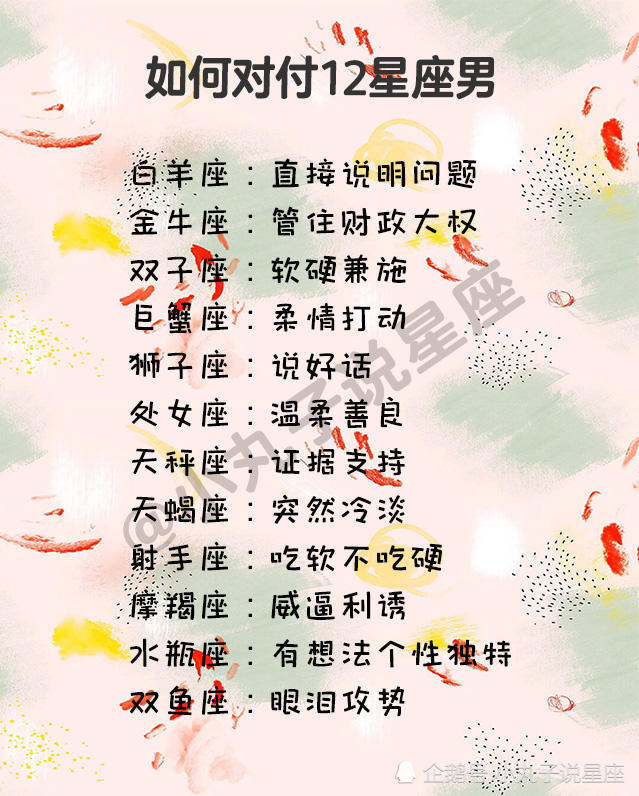 如何对付12星座男
白羊座：直接说明问题
金牛座：管住财政大权
双子座：软硬兼施
巨蟹座：柔情打动
狮子座：说好话
处女座：温柔善良
天秤座：证据支持
天蝎座：突然冷淡
射手座：吃软不吃硬
摩羯座：威逼利诱
水瓶座：有想法个性独特
双鱼座：眼泪攻势
@小丸子说星座
企鹅号 小丸子说星座